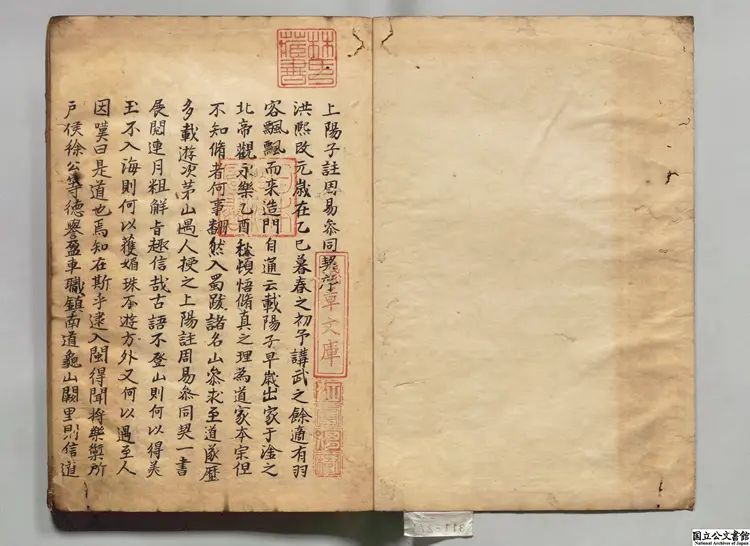 上陽子註周易參同契序
洪熙改元歲在乙巳暮春之初予講武之餘適有羽
客飄飄而来造門自通云載陽子早歲出家于淦之
北帝觀永樂乙酉秋頓悟脩真之理為道家本宗但
不知脩者何事翻然入蜀跋諸名山叅求至道遂歷
多載遊次茅山遇人授之上陽註周易叅同契一書
展閱連月粗解旨趣信哉古語不登山則何以得美
玉不入海則何以獲媚珠不遊方外又何以遇至人
因嘆曰是道也焉知在斯乎逮入閩得聞將樂禦所
户侯徐公等德譽盈車職鎮南道龜山闕里則信道
林氏藏書
淺草文庫
国立公文書館
National Archives of Japan